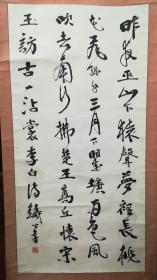 昨夜巫山下猿聲夢裡長桃
花飛綠水三月下瞿塘雨色風
吹去南行拂楚王高丘懷宋
玉訪古一沾裳李白詩